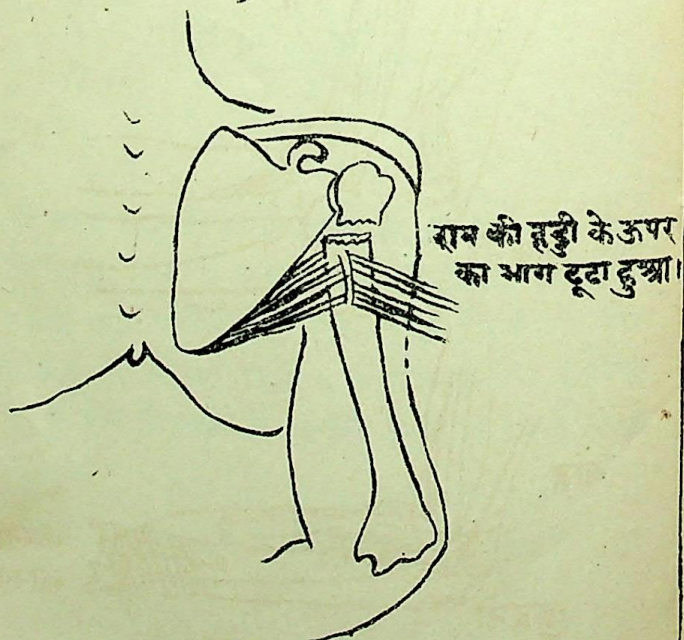 हाथ की हड्डी के ऊपर
का भाग टूटा हुआ।